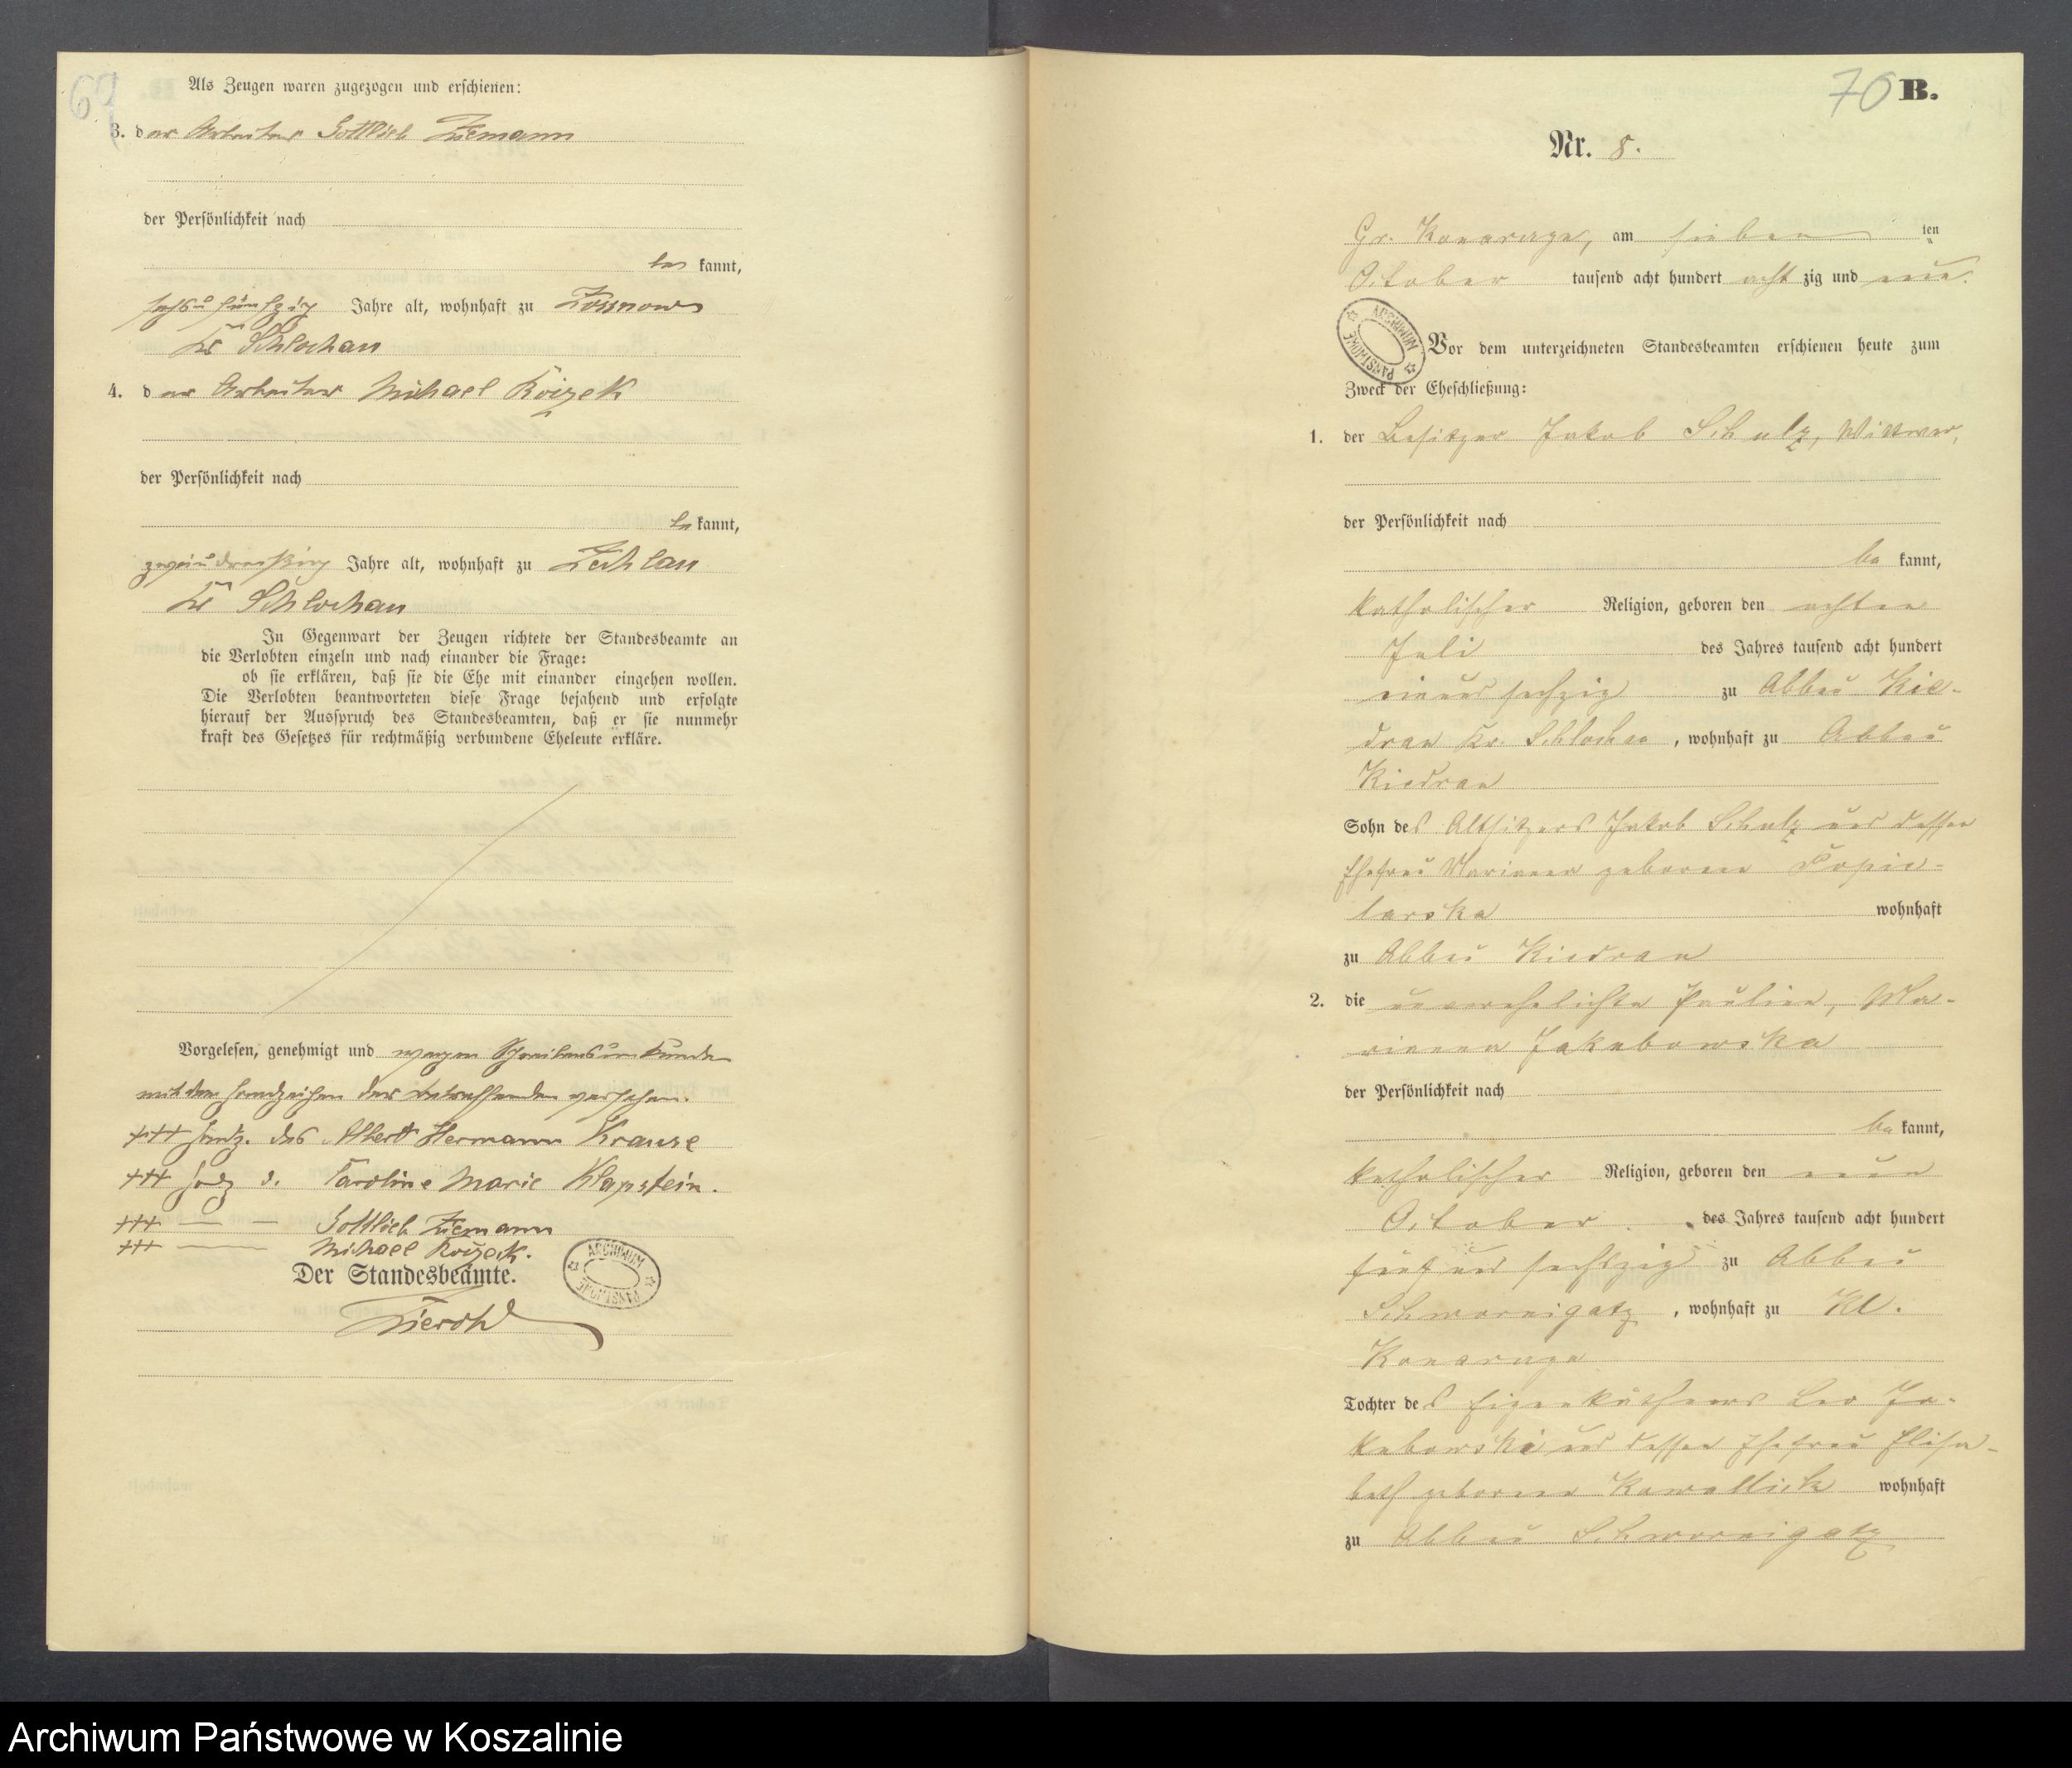 69
Als Zeugen waren zugezogen und erschienen:
3. der Arbeiter Gottlieb Ziemann
der Persönlichkeit nach
be kannt,
sechsu fünfzig Jahre alt, wohnhaft zu
Kr Schlochau
4. der Arbeiter Michael
der Persönlichkeit nach
be kannt,
zweiu dreißig Jahre alt, wohnhaft zu Zechlau
Kr Schlochau
In Gegenwart der Zeugen richtete der Standesbeamte an
die Verlobten einzeln und nach einander die Frage:
ob sie erklären, daß sie die Ehe mit einander eingehen wollen.
Die Verlobten beantworteten diese Frage bejahend und erfolgte
hierauf der Ausspruch des Standesbeamten, daß er sie nunmehr
kraft des Gesetzes für rechtmäßig verbundene Eheleute erkläre.
Vorgelesen, genehmigt und wegen Schreibensunkunde
mit den Handzeichen der Betreffenden versehen.
+++ Handz. des Albert Hermann Krause
+++ Hdz d. Caroline Marie Klapstein.
+++ — — Gottlieb Ziemann
+++ — Michael
Der Standesbeamte.
ARCHIWUM PAŃSTWOWE
70 B.
Nr. 8.
Gr. Konarczyn, am sieben ten
October tausend acht hundert acht zig und neun.
ARCHIWUM PAŃSTWOWE
Vor dem unterzeichneten Standesbeamten erschienen heute zum
Zweck der Eheschließung:
1. der Besitzer Jakob Schulz, Wittwer,
der Persönlichkeit nach
be kannt,
katholischer Religion, geboren den achten
Juli des Jahres tausend acht hundert
einund sechzig zu Abbau Kie-
dran Kr. Schlochau, wohnhaft zu Abbau
Kiedran
Sohn des Altsitzers Jakob Schulz und dessen
Ehefrau Marianna geborene Popie-
larska wohnhaft
zu Abbau Kiedran
2. die unverehelichte Pauline, Ma-
rianna Jakubowska
der Persönlichkeit nach
be kannt,
katholischer Religion, geboren den neun
October des Jahres tausend acht hundert
fünf und sechszig zu Abbau
Schwornigatz, wohnhaft zu Kl.
Konarczyn
Tochter des Eigenkäthners Leo Ja-
kubowski und dessen Ehefrau Elisa-
beth geborene Kowallick wohnhaft
zu Abbau Schwornigatz
Archiwum Państwowe w Koszalinie